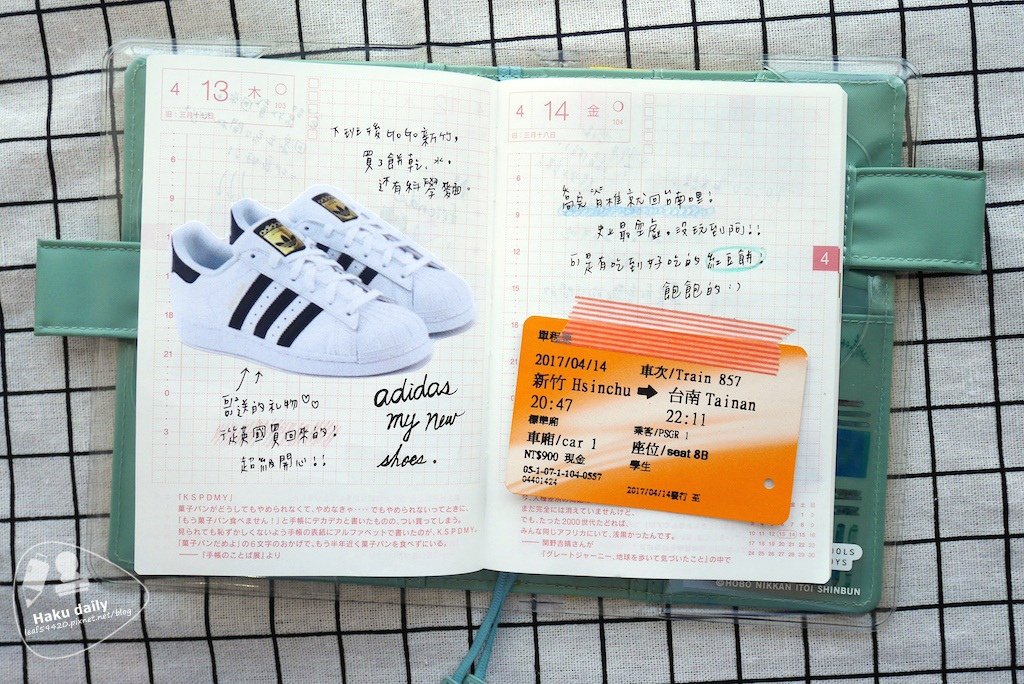 4 13 木
103
旧:三月十七日
下班後GOGO新竹,
買了餅乾、水。
還有科學麵。
6
9
12
15
18
21
0
3
adidas
my new
shoes.
哥送的礼物♡♡
從英國買回來的!
超級開心!!
「KSPDMY」
菓子パンがどうしてもやめられなくて、やめなきゃ・・・でもやめられないってときに、
「もう菓子パン食べません!」と手帳にデカデカと書いたものの、つい買ってしまう。
見られても恥ずかしくないよう手帳の表紙にアルファベットで書いたのが、K.S.P.D.M.Y.
「菓子パンだめよ」の6文字のおかげで、もう半年近く菓子パンを食べずにいる。
──『手帳のことば展』より
4 14 金
104
旧:三月十八日
就回台南嘿!
史上最空虛。沒玩到阿!!
可是有吃到好吃的紅豆餅!
飽飽的:)
4
6
9
12
15
單程票
2017/04/14 車次/Train 857
新竹 Hsinchu → 台南 Tainan
20:47 22:11
標準廂 乘客/PSGR 1
車廂/car 1 座位/seat 8B
NT$900 現金 學生
05-1-07-1-104-0557
04401424 2017/04/14發行
まだ完全には消えていませんけど、
でも、たった2000世代たどれば、
みんな同じアフリカにいて、浅黒かったんです。
──関野吉晴さんが
『グレートジャーニー、地球を歩いて気づいたこと』の中で
©HOBO NIKKAN ITOI SHINBUN
Haku daily
leaf59420.pixnet.net/blog